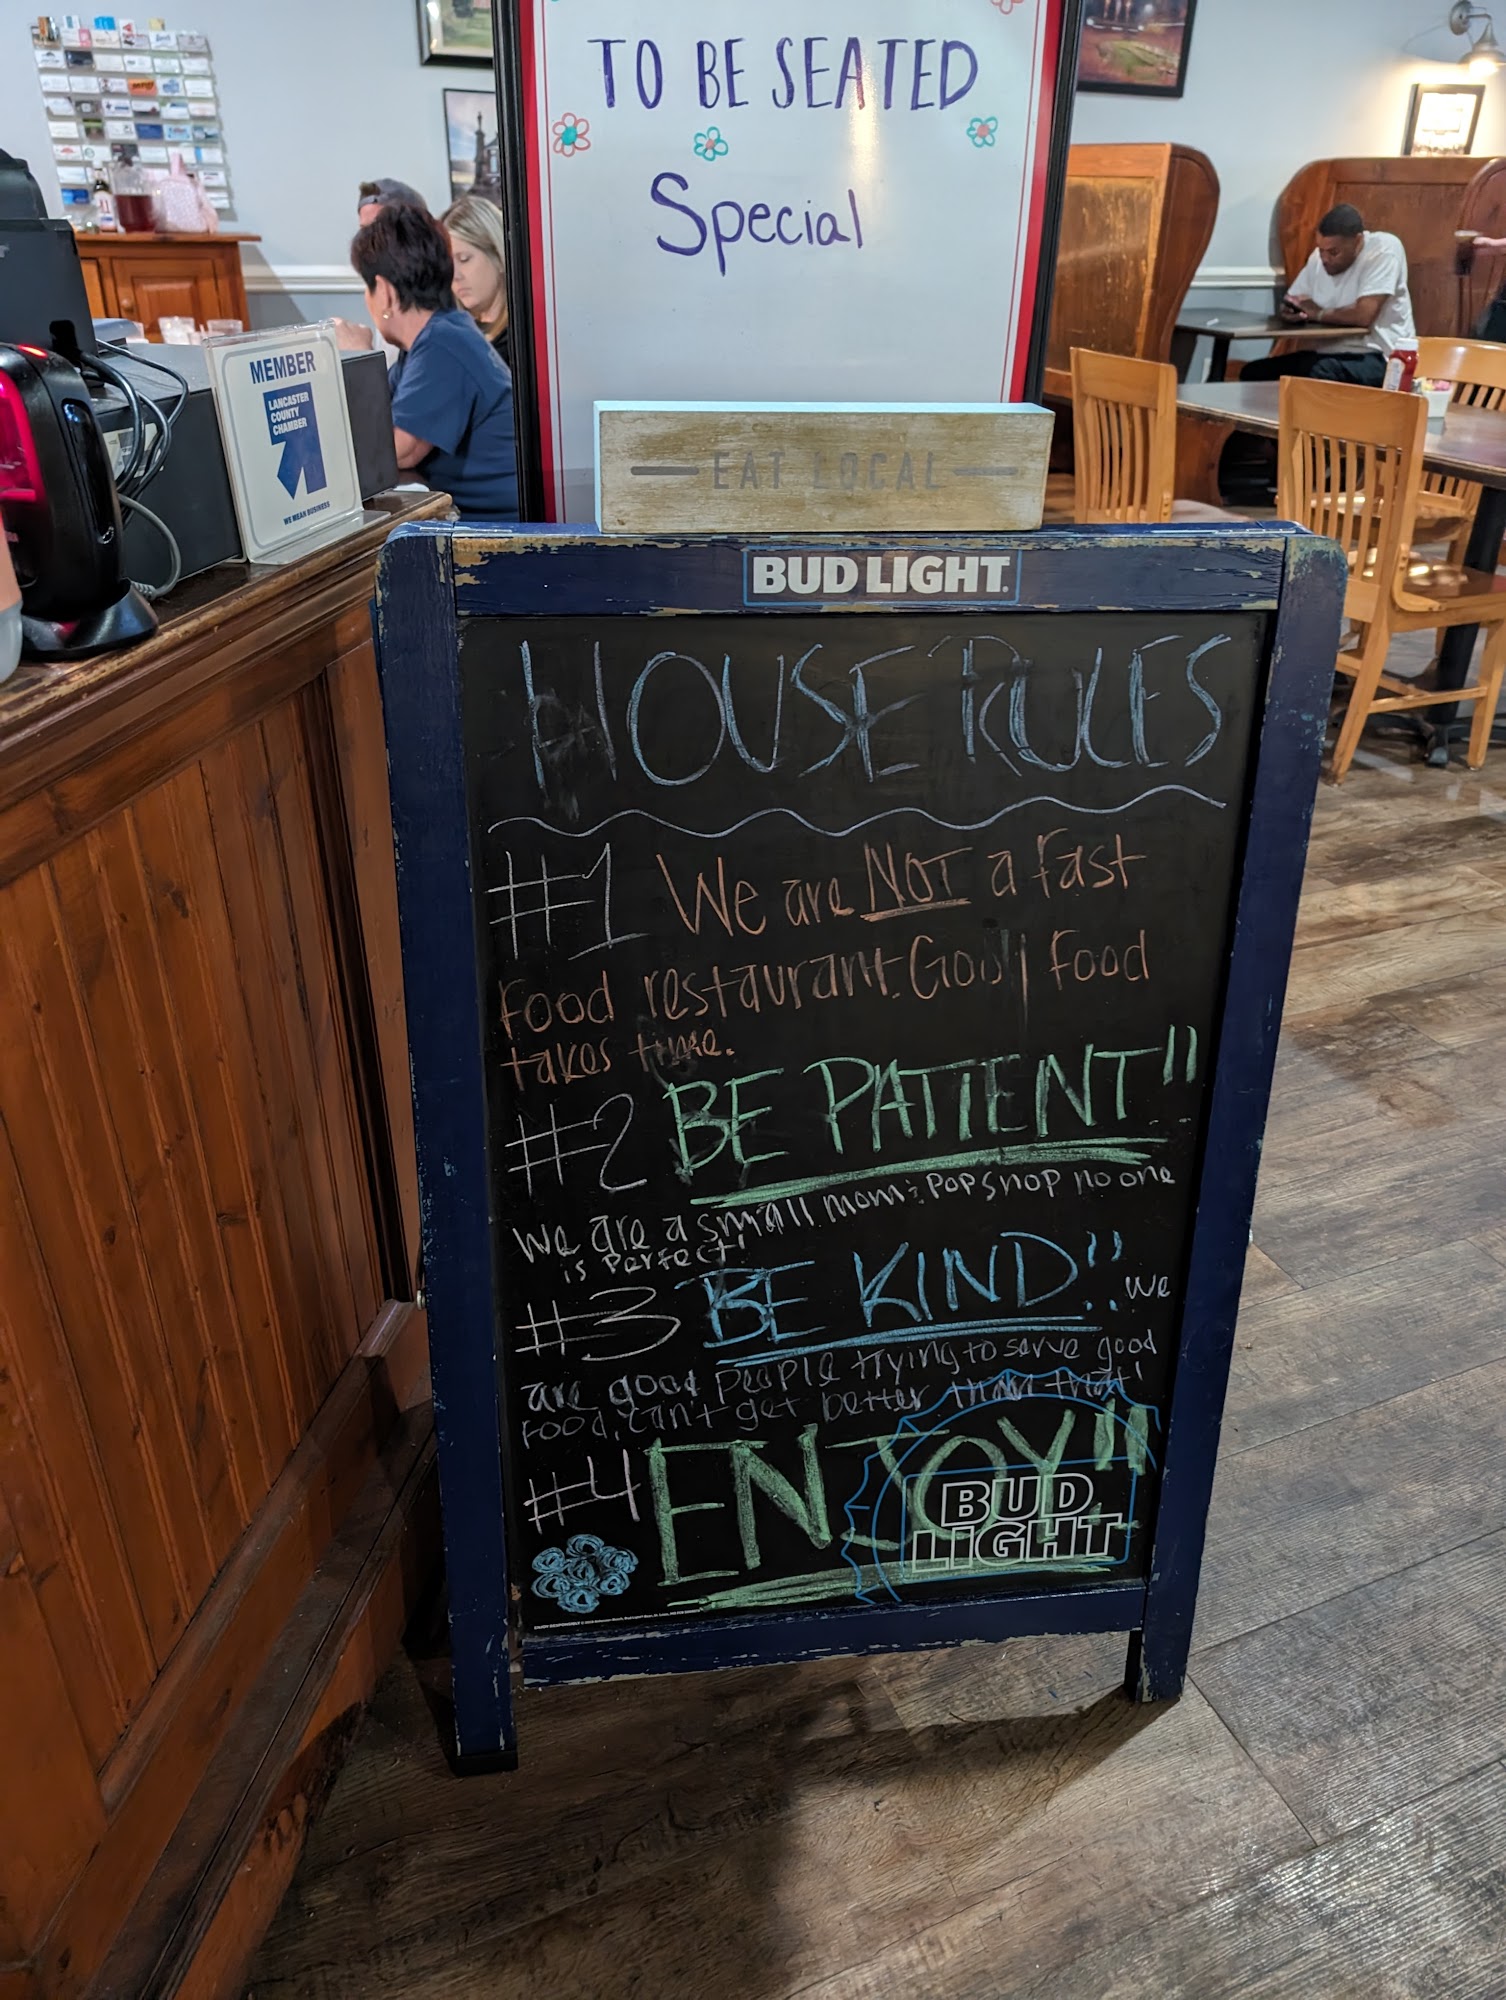 TO BE SEATED
Special
MEMBER
LANCASTER
COUNTY
CHAMBER
WE MEAN BUSINESS
EAT LOCAL
BUD LIGHT
HOUSE RULES
#1 We are NOT a fast
food restaurant. Good food
takes time.
#2 BE PATIENT!!
We are a small mom & pop shop no one
is perfect!
#3 BE KIND!! we
are good people trying to serve good
food, can't get better than that!
#4 ENJOY!!
BUD
LIGHT